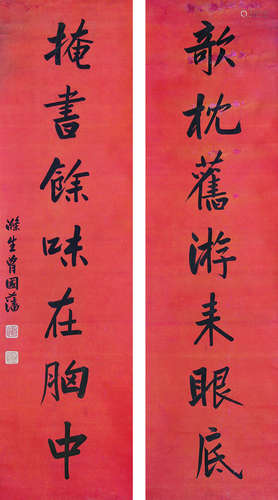 欹枕舊游来眼底
掩書餘味在胸中
滌生曾國藩